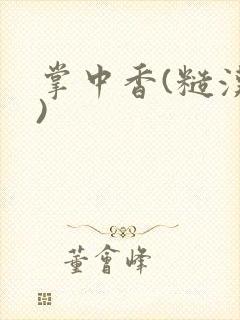 掌中香(糙漢
)
董會峰